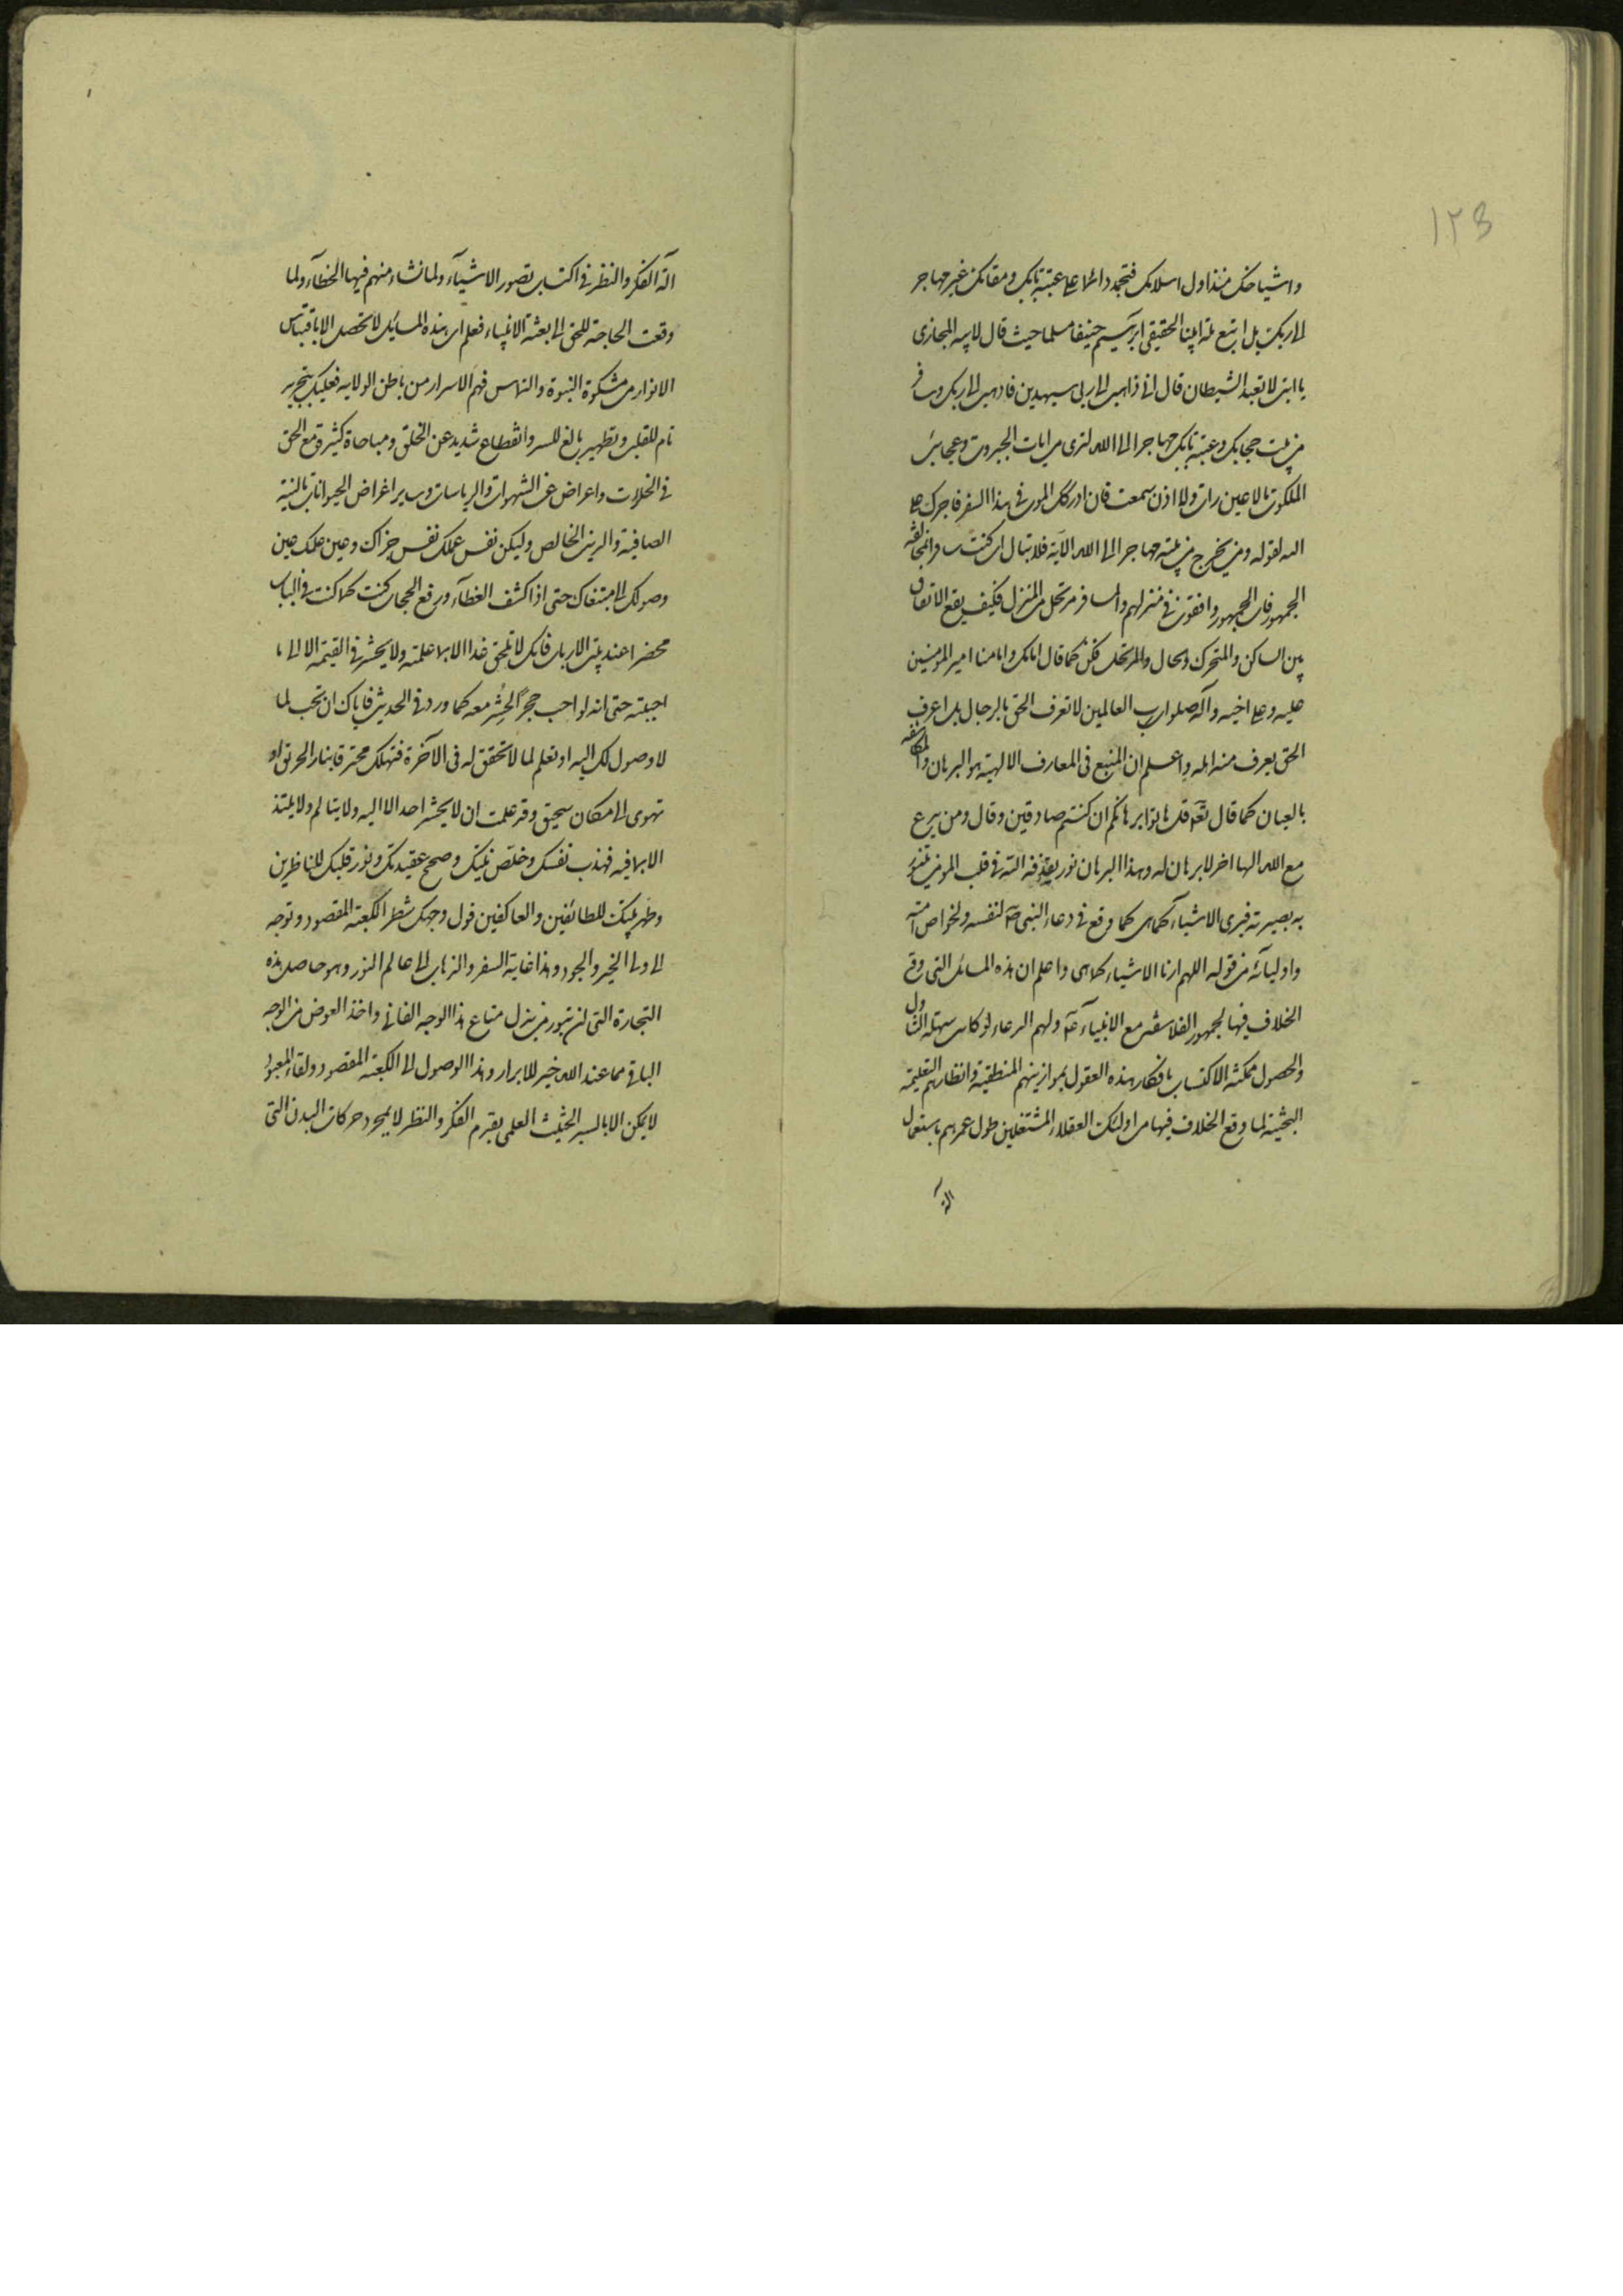 ١٢٣
واشياخك منذ اول اسلامك فتجمد دائما على عتبة بابك ومقامك غير مهاجر
الى ربك بل اتبع ملة ابينا الحقيقى ابرهيم حنيفا مسلما حيث قال لابيه المجازى
يا ابت لا تعبد الشيطان قال انى ذاهب الى ربى سيهدين فاذهب الى ربك وسافر
من بيت حجابك وعتبة بابك مهاجرا الى الله لترى من ايات الجبروت وعجائب
الملكوت ما لا عين رات ولا اذن سمعت فان ادركك الموت فى هذا السفر فاجرك على
الله لقوله ومن يخرج من بيته مهاجرا الى الله الآية فلا تبال ان كنت مسافرا بمخالفة
الجمهور فان الجمهور واقفون فى منزلهم والمسافر مرتحل من المنزل فكيف يقع الاتفاق
بين الساكن والمتحرك والحال والمرتحل فكن كما قال امامك وامامنا امير المومنين
عليه وعلى اخيه وآله صلوات رب العالمين لا تعرف الحق بالرجال بل اعرف
الحق يعرف منه اهله واعلم ان المتبع فى المعارف الالهية هو البرهان والمكاشفة
بالعيان كما قال تعه قل هاتوا برهانكم ان كنتم صادقين وقال ومن يدع
مع الله الها اخر لا برهان له وهذا البرهان نور يقذفه الله فى قلب المومن يتنور
به بصيرته فيرى الاشياء كما هى كما وقع فى دعاء النبى صه لنفسه ولخواص امته
واوليائه من قوله اللهم ارنا الاشياء كما هى واعلم ان هذه المسائل التى وقع
الخلاف فيها لجمهور الفلاسفة مع الانبياء عه ولهم الدعاء لو كانت سهلة التناول
والحصول ممكنة الاكتساب بافكار هذه العقول بموازينهم المنطقية وانظارهم التعليمية
البحثية لما وقع الخلاف فيها من اولئك العقلاء المشتغلين طول عمرهم باستعمال
الة
آلة الفكر والنظر فى اكتساب تصور الاشياء ولما نشاء منهم فيها الخطاء ولما
وقعت الحاجة للحق الى بعثة الانبياء فعلم ان هذه المسائل لا تحصل الا باقتباس
الانوار من مشكوة النبوة والتماس فهم الاسرار من باطن الولاية فعليك بتجريد
تام للقلب وتطهير بالغ للسر وانقطاع شديد عن الخلق ومناجاة كثيرة مع الحق
فى الخلوات واعراض عن الشهوات والرياسات وساير اغراض الحيوانات بالنية
الصافية والدين الخالص وليكن نفس عملك نفس جزاك وعين علمك عين
وصولك الى مبتغاك حتى اذا كشف الغطاء ورفع الحجاب كنت كما كنت فى الباب
محضرا عند رب الارباب فانك لا تلحق غدا الا بما علمته ولا يحشر فى القيمة الا الى ما
احببته حتى انه لو احب حجرا لحشر معه كما ورد فى الحديث فاياك ان تحب لما
لا وصول لك اليه او تعلم لما لا تحقق له فى الآخرة فتهلك محترقا بنار الحرق او
تهوى الى مكان سحيق وقد علمت ان لا يحشر احد الا اليه ولا يتالم ولا يلتذ
الا بما فيه فهذب نفسك وخلص نيتك وصحح عقيدتك ونور قلبك للناظرين
وطهر بيتك للطائفين والعاكفين فول وجهك شطر الكعبة المقصود وتوجه
الى ولى الخير والجود وهذا غاية السفر والذهاب الى عالم النور وهو حاصل هذه
التجارة التى لن تبور من بذل متاع هذا الوجه الفانى واخذ العوض من الوجه
الباقى مما عند الله خير للابرار وهذا الوصول الى الكعبة المقصود ولقاء المعبود
لا يمكن الا بالسير الحثيث العلمى بقدم الفكر والنظر لا بمجرد حركات البدن التى